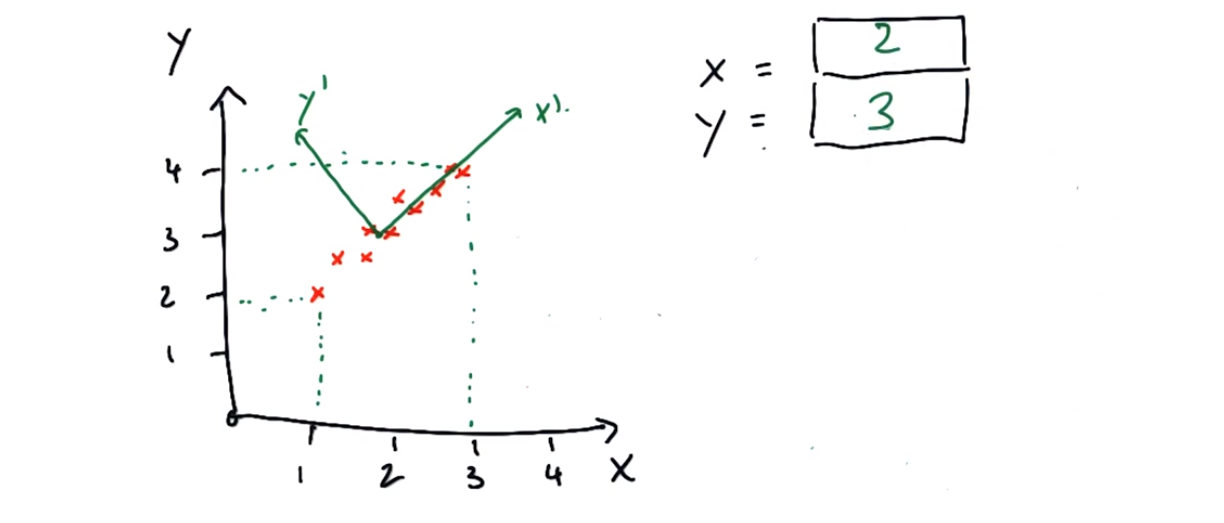 Y
y'
x'.
4
3
2
1
0
1 2 3 4 X
x = 2
y = 3